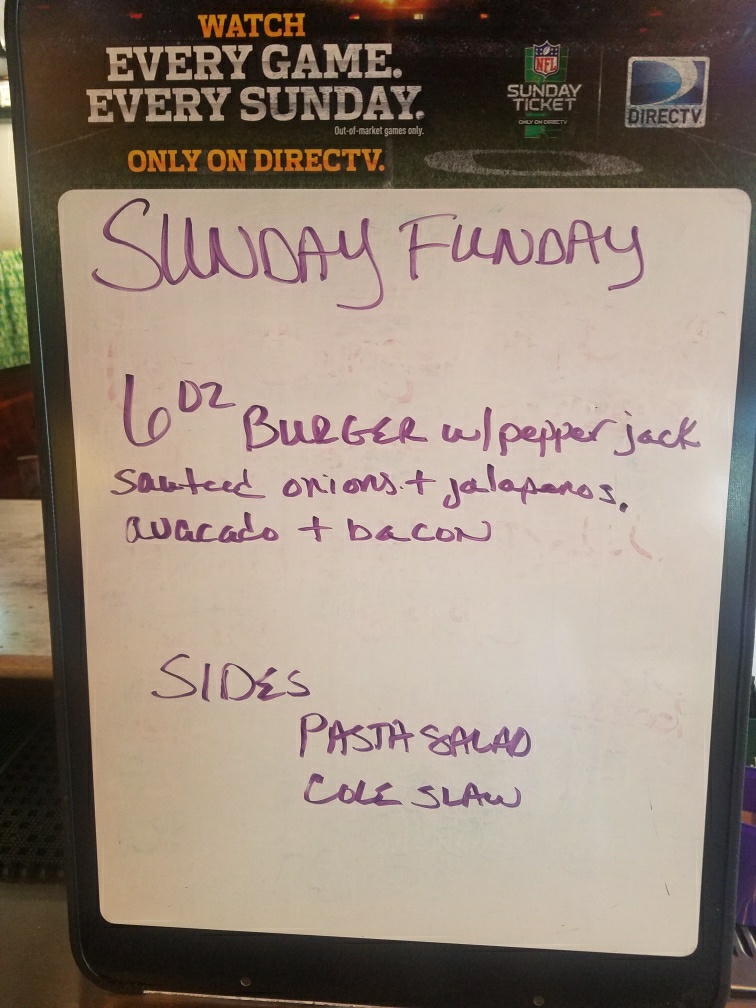 WATCH
EVERY GAME.
EVERY SUNDAY.
Out-of-market games only.
ONLY ON DIRECTV.
NFL
SUNDAY
TICKET
ONLY ON DIRECTV
DIRECTV
SUNDAY FUNDAY
6 OZ BURGER w/pepper jack
sauteed onions + jalapenos.
avacado + bacon
SIDES
PASTA SALAD
COLE SLAW